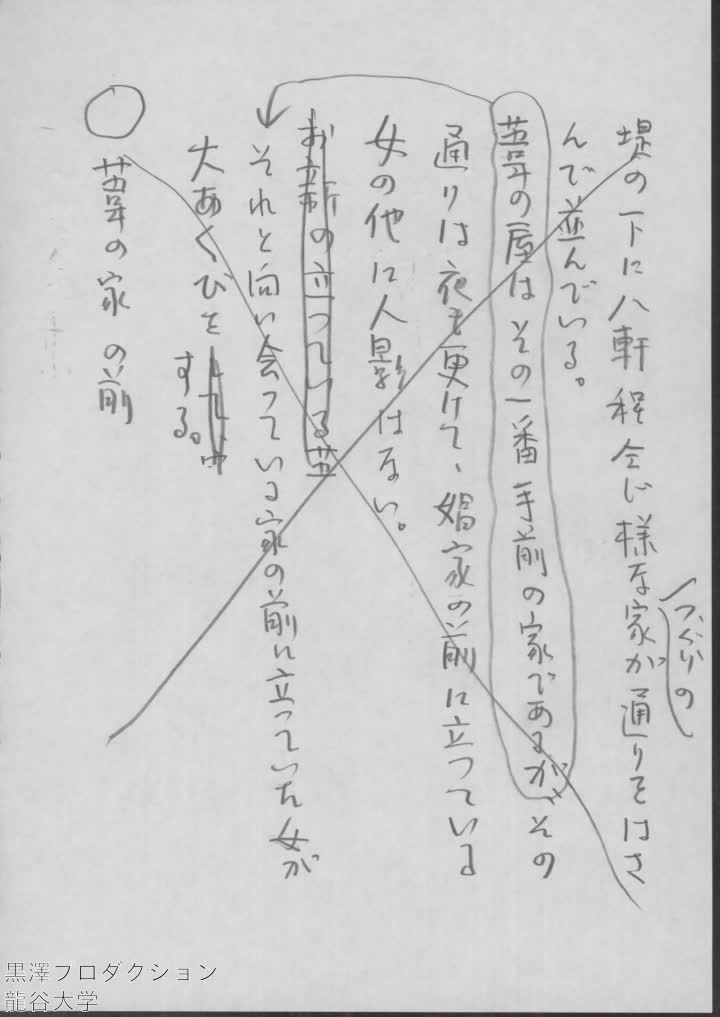 堤の下に八軒程同じ様な家が通りをはさ
づくりの
んで並んでいる。
葦の屋はその一番手前の家であるが、その
通りは夜も更けて、娼家の前に立っている
女の他に人影はない。
お新の立っている葦
それと向い合っている家の前に立っていた女が
大あくびを
する。
葦の家の前
黒澤プロダクション
龍谷大学